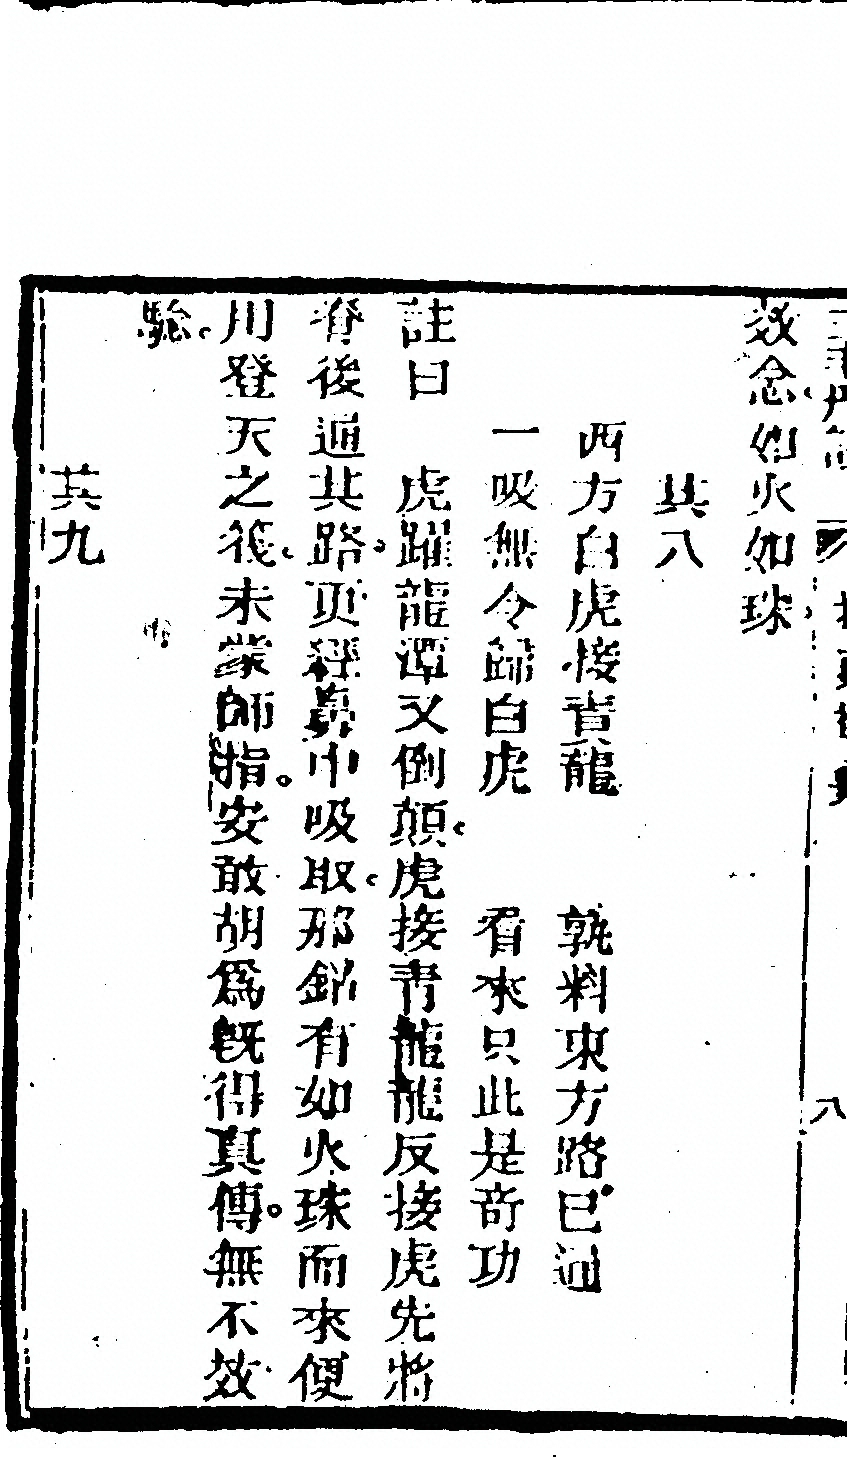 效念如火如珠
其八
西方白虎接青龍　孰料東方路已通
一吸無令歸白虎　看來只此是奇功
註曰　虎躍龍潭又倒顛虎接青龍龍反接虎先將
脊後通其路頂經鼻中吸取那鉛有如火珠而來便
用登天之筏未蒙師指。安敢胡爲旣得真傳。無不效
驗。
其九
八